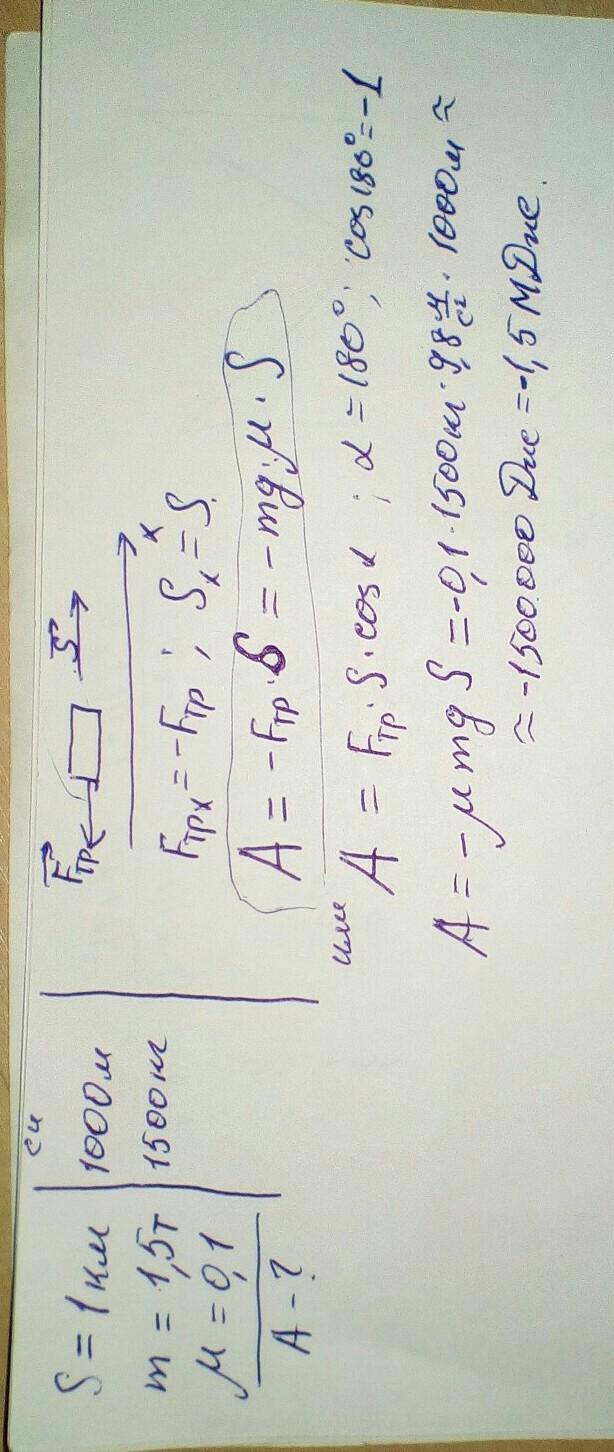 S = 1 км
m = 1,5т
μ = 0,1
A - ?
си
1000м
1500кг
Fтр S
x
Fтрx = -Fтр ; Sx = S.
A = -Fтр·S = -mg·μ·S
или
A = Fтр·S·cosα ; α = 180°; cos180° = -1
A = -μmgS = -0,1·1500кг·9,8 м/с²·1000м ≈
≈ -1500.000 Дж = -1,5 МДж.